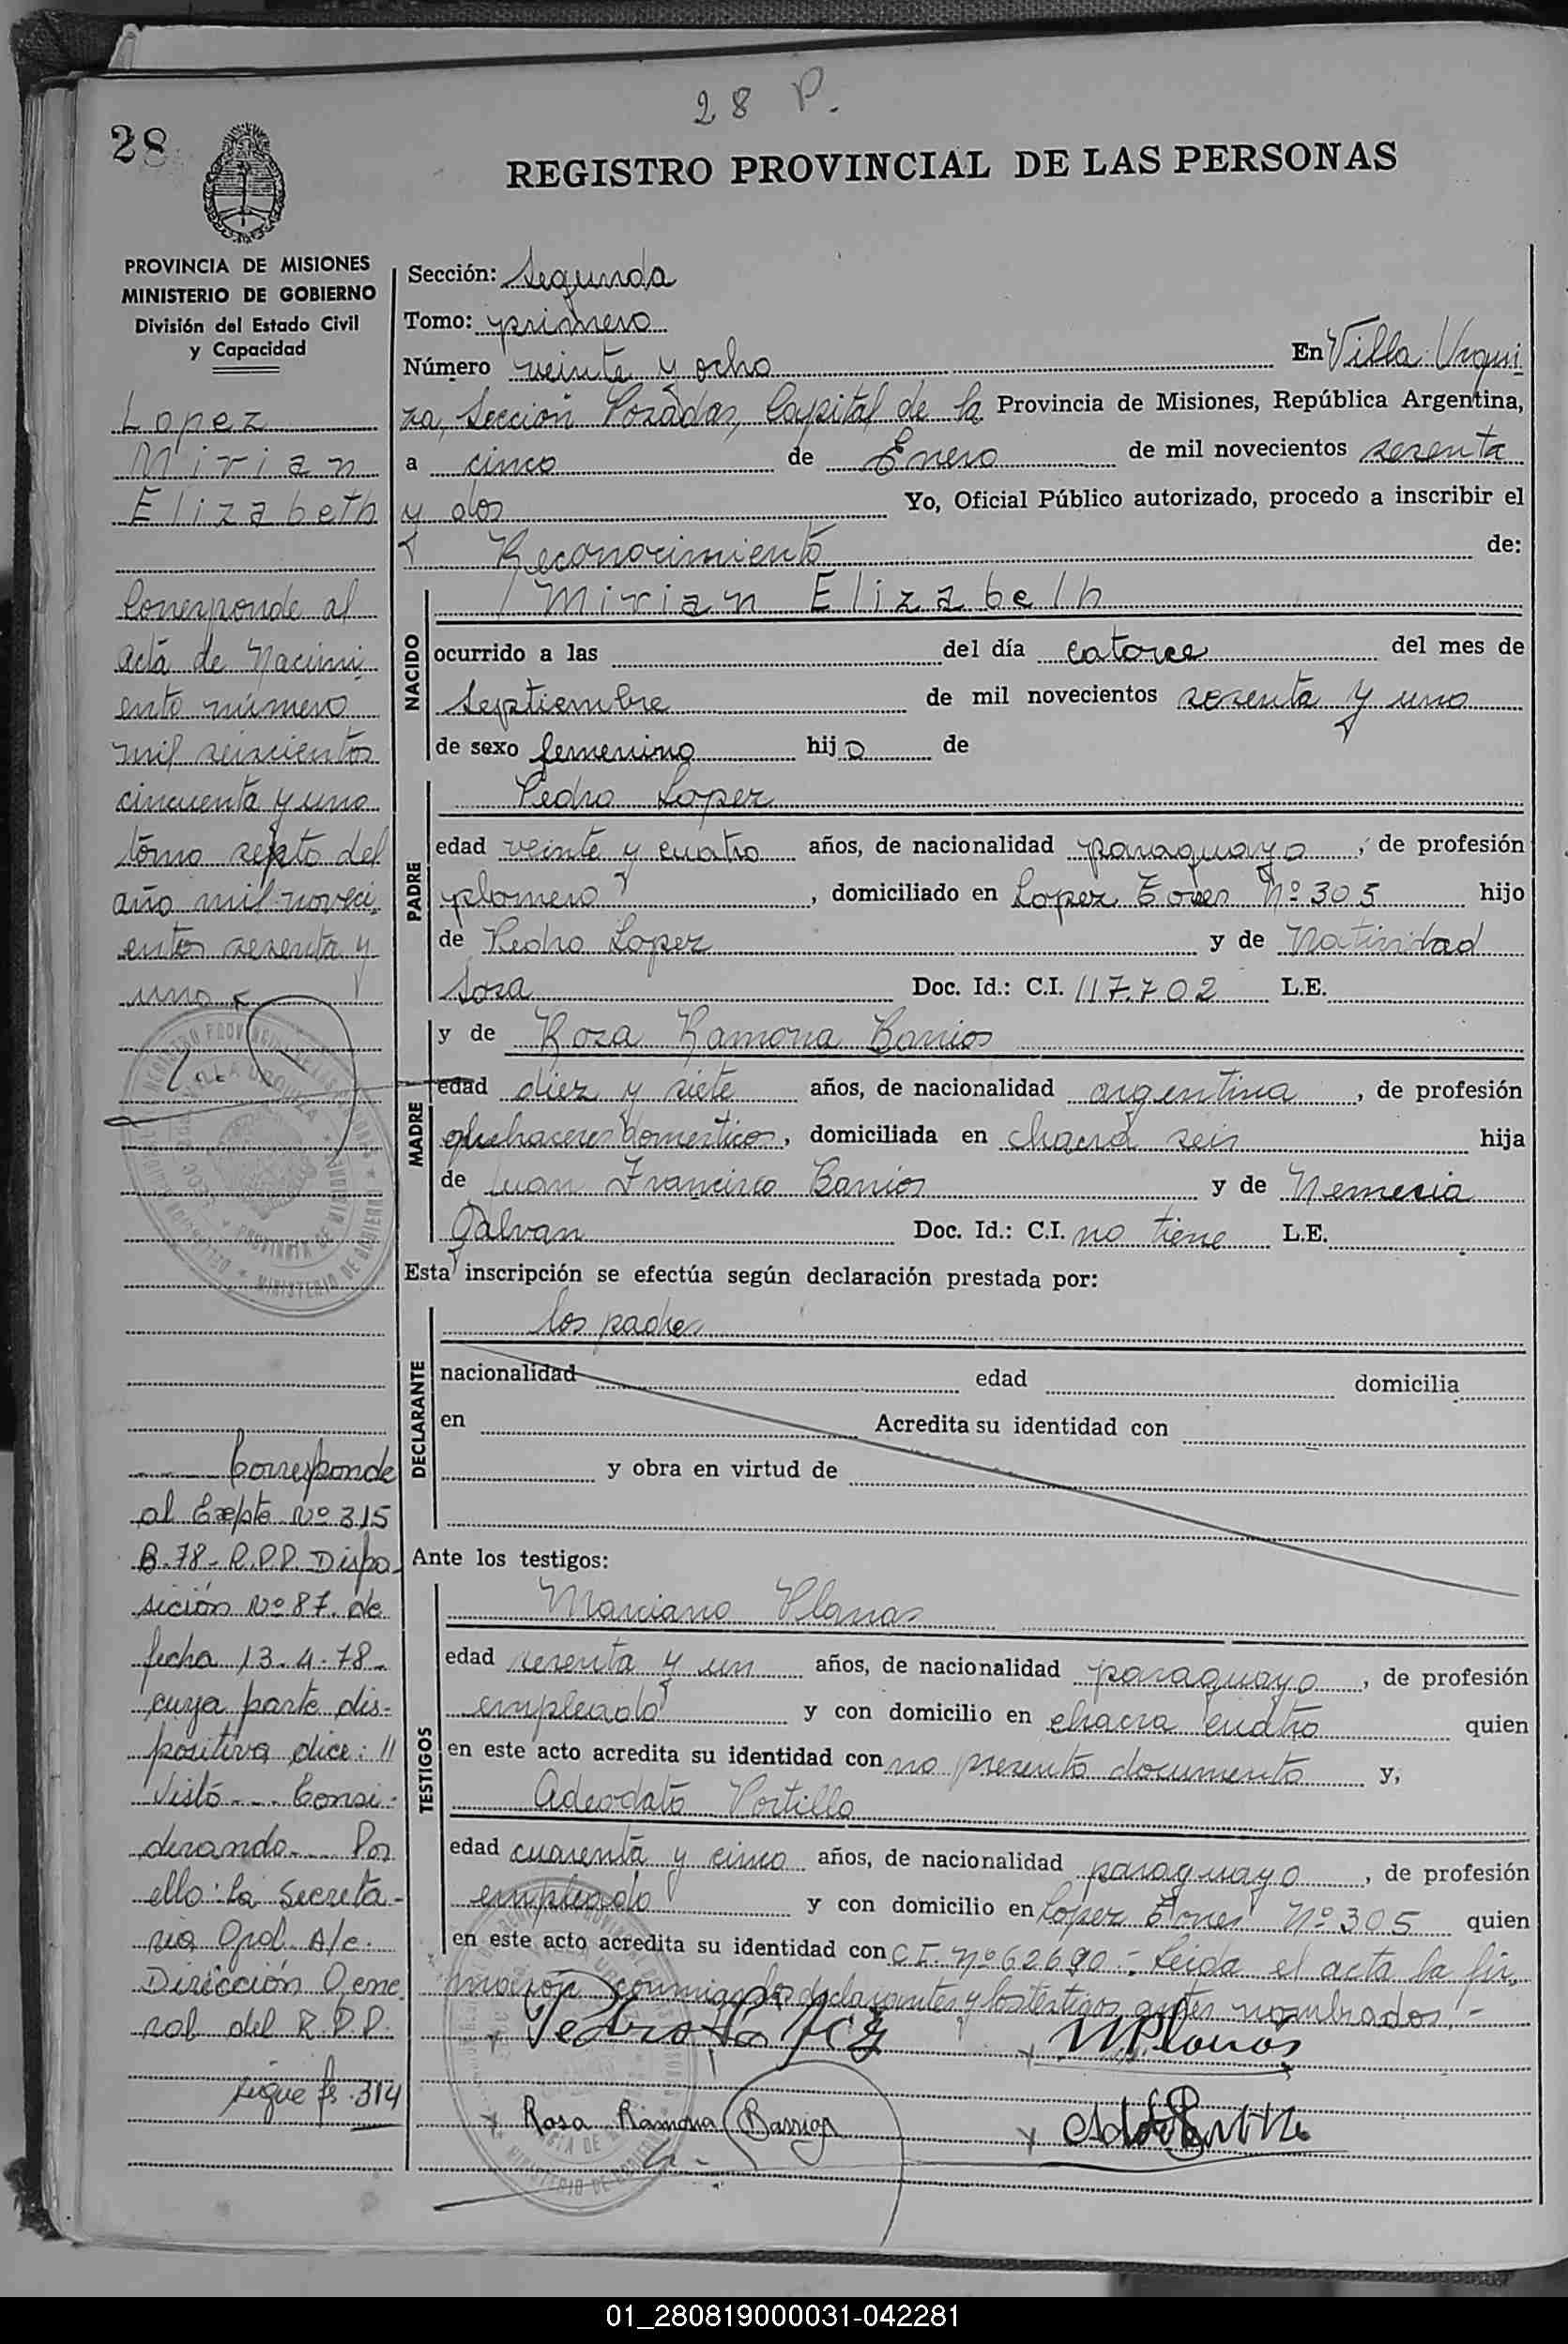 28 P.
28
REGISTRO PROVINCIAL DE LAS PERSONAS
PROVINCIA DE MISIONES
MINISTERIO DE GOBIERNO
División del Estado Civil
y Capacidad
Lopez
Mirian
Elizabeth
Corresponde al
acta de Nacimi
ento número
mil seiscientos
cincuenta y uno
tomo septo del
año mil noveci
entos sesenta y
uno
Corresponde
al Expte Nº 315
B-78- R.P.P. Dispo-
sición Nº 87. de
fecha 13-4-78-
cuya parte dis-
positiva dice: "
Visto --- Consi-
derando --- Por
ello: La Secreta-
ria Gral. A/c.
Dirección Gene
ral del R.P.P.
sigue fs. 314
Sección: Segunda
Tomo: primero
Número veinte y ocho En Villa Urqui
za, Sección Posadas, Capital de la Provincia de Misiones, República Argentina,
a cinco de Enero de mil novecientos sesenta
y dos Yo, Oficial Público autorizado, procedo a inscribir el
Reconocimiento de:
NACIDO
Mirian Elizabeth
ocurrido a las del día catorce del mes de
Septiembre de mil novecientos sesenta y uno
de sexo femenino hijo de
PADRE
Pedro Lopez
edad veinte y cuatro años, de nacionalidad paraguayo, de profesión
plomero, domiciliado en Lopez Torres Nº 305 hijo
de Pedro Lopez y de Natividad
Sosa Doc. Id.: C.I. 117.702 L.E.
MADRE
y de Rosa Ramona Barrios
edad diez y siete años, de nacionalidad argentina, de profesión
quehaceres domesticos, domiciliada en chacra seis hija
de Juan Francisco Barrios y de Nemesia
Galvan Doc. Id.: C.I. no tiene L.E.
Esta inscripción se efectúa según declaración prestada por:
DECLARANTE
los padres
nacionalidad edad domicilia
en Acredita su identidad con
y obra en virtud de
Ante los testigos:
TESTIGOS
Marciano Planas
edad sesenta y un años, de nacionalidad paraguayo, de profesión
empleado y con domicilio en chacra cuatro quien
en este acto acredita su identidad con no presento documento y,
Adeodato Portillo
edad cuarenta y cinco años, de nacionalidad paraguayo, de profesión
empleado y con domicilio en Lopez Torres Nº 305 quien
en este acto acredita su identidad con C.I. Nº 62690 -. Leida el acta la fir
maron conmigo los declarantes y los testigos antes nombrados.-
Pedro Lopez
M Planas
Rosa Ramona Barrios
01_280819000031-042281